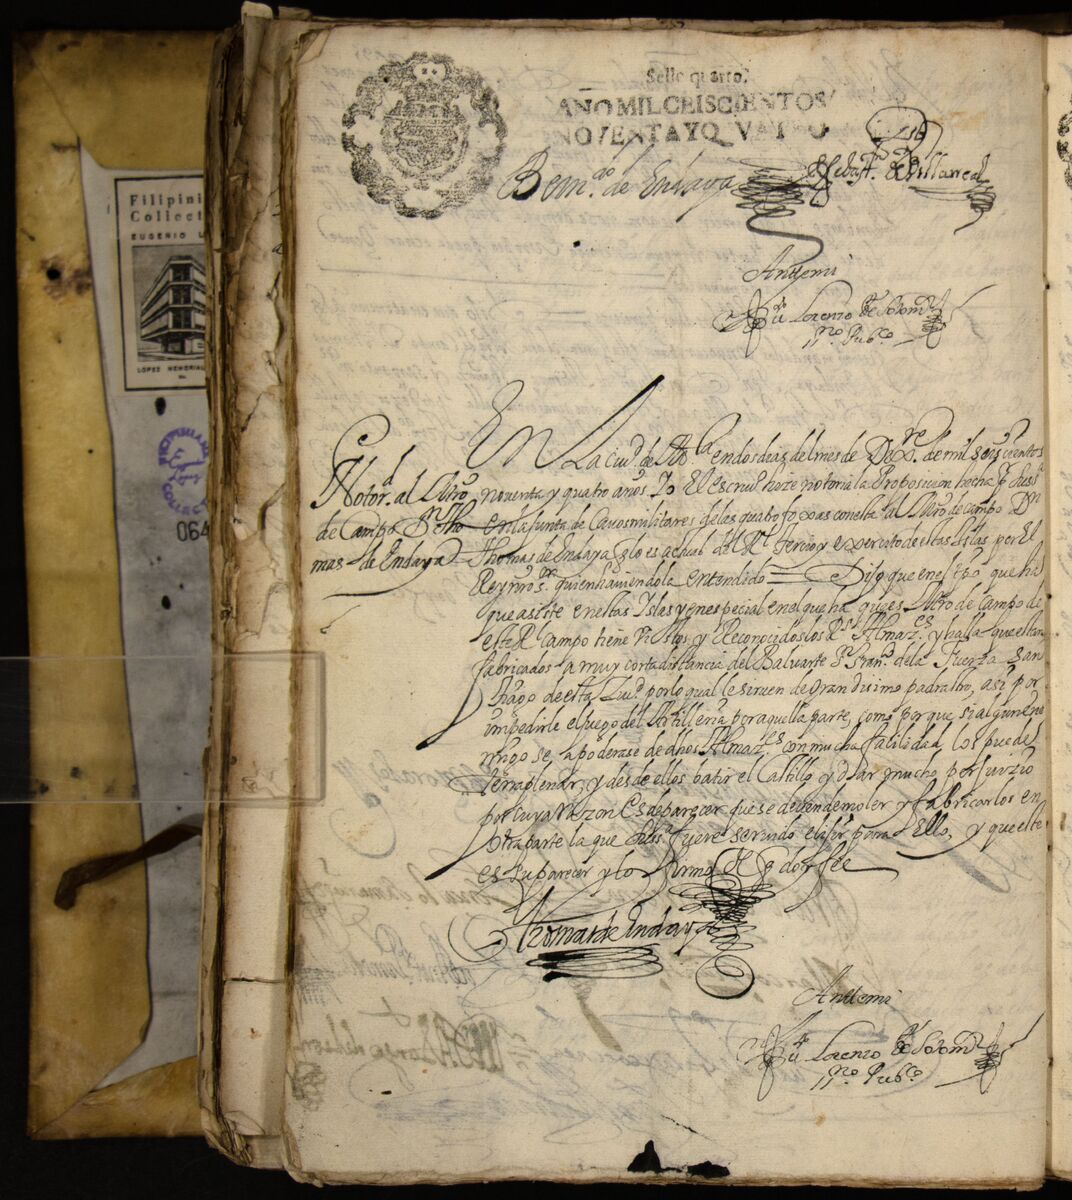 Filipini
Collect
EUGENIO L
LOPEZ MEMORIAL
FILIPINIANA
COLLECT
064
Sello quarto,
AÑO MIL CEISCIENTOS
NOVENTA Y QVATRO
Bern.do de Endaya
Sebast.n de Villarreal
Anttemi
Lorenzo de Sotom.r
ss.no Pub.co
En La ciud. de M.la en dos dias del mes de Dez.re de mil seiscientos
Notor.d al Mro noventa y quatro años. Yo El escriu.no hize notoria la Proposicion hecha p.r su s.a
de Campo D.n Tho en la Junta de Cauos militares de las quatro foxas con esta al Mro de campo D.n
mas de Endaya Thomas de Endaya q lo es actual del R.l tercio y exercito de estas Islas por El
Rey nro s.or quien hauiendola entendido = Dijo que en el tpo que ha
que asiste en estas Islas y en especial en el que ha q es Mro de Campo de
este R.l campo tiene vistos y Reconocidos los R.s Almaz.es y halla que estan
fabricados a muy corta distancia del Baluarte S.n Fran.co de la Fuerza San
tiago de esta Ciu.d por lo qual le siruen de Grandisimo padrastro, asi por
impedirle el juego del Artilleria por aquella parte, como porque si algun ene
migo se apoderase de dhos Almaz.es con mucha fasilidad los puede
terraplenar, y desde ellos batir el Castillo y dar mucho perjuizio
por cuya razon Es de parecer que se deuen demoler y fabricarlos en
otra parte la que su s.a fuere seruido elijir para Ello, y que este
es su parecer y lo firmo de q doy fee
Thomas de Endaya
Anttemi
Lorenzo de Sotom.r
ss.no Pub.co